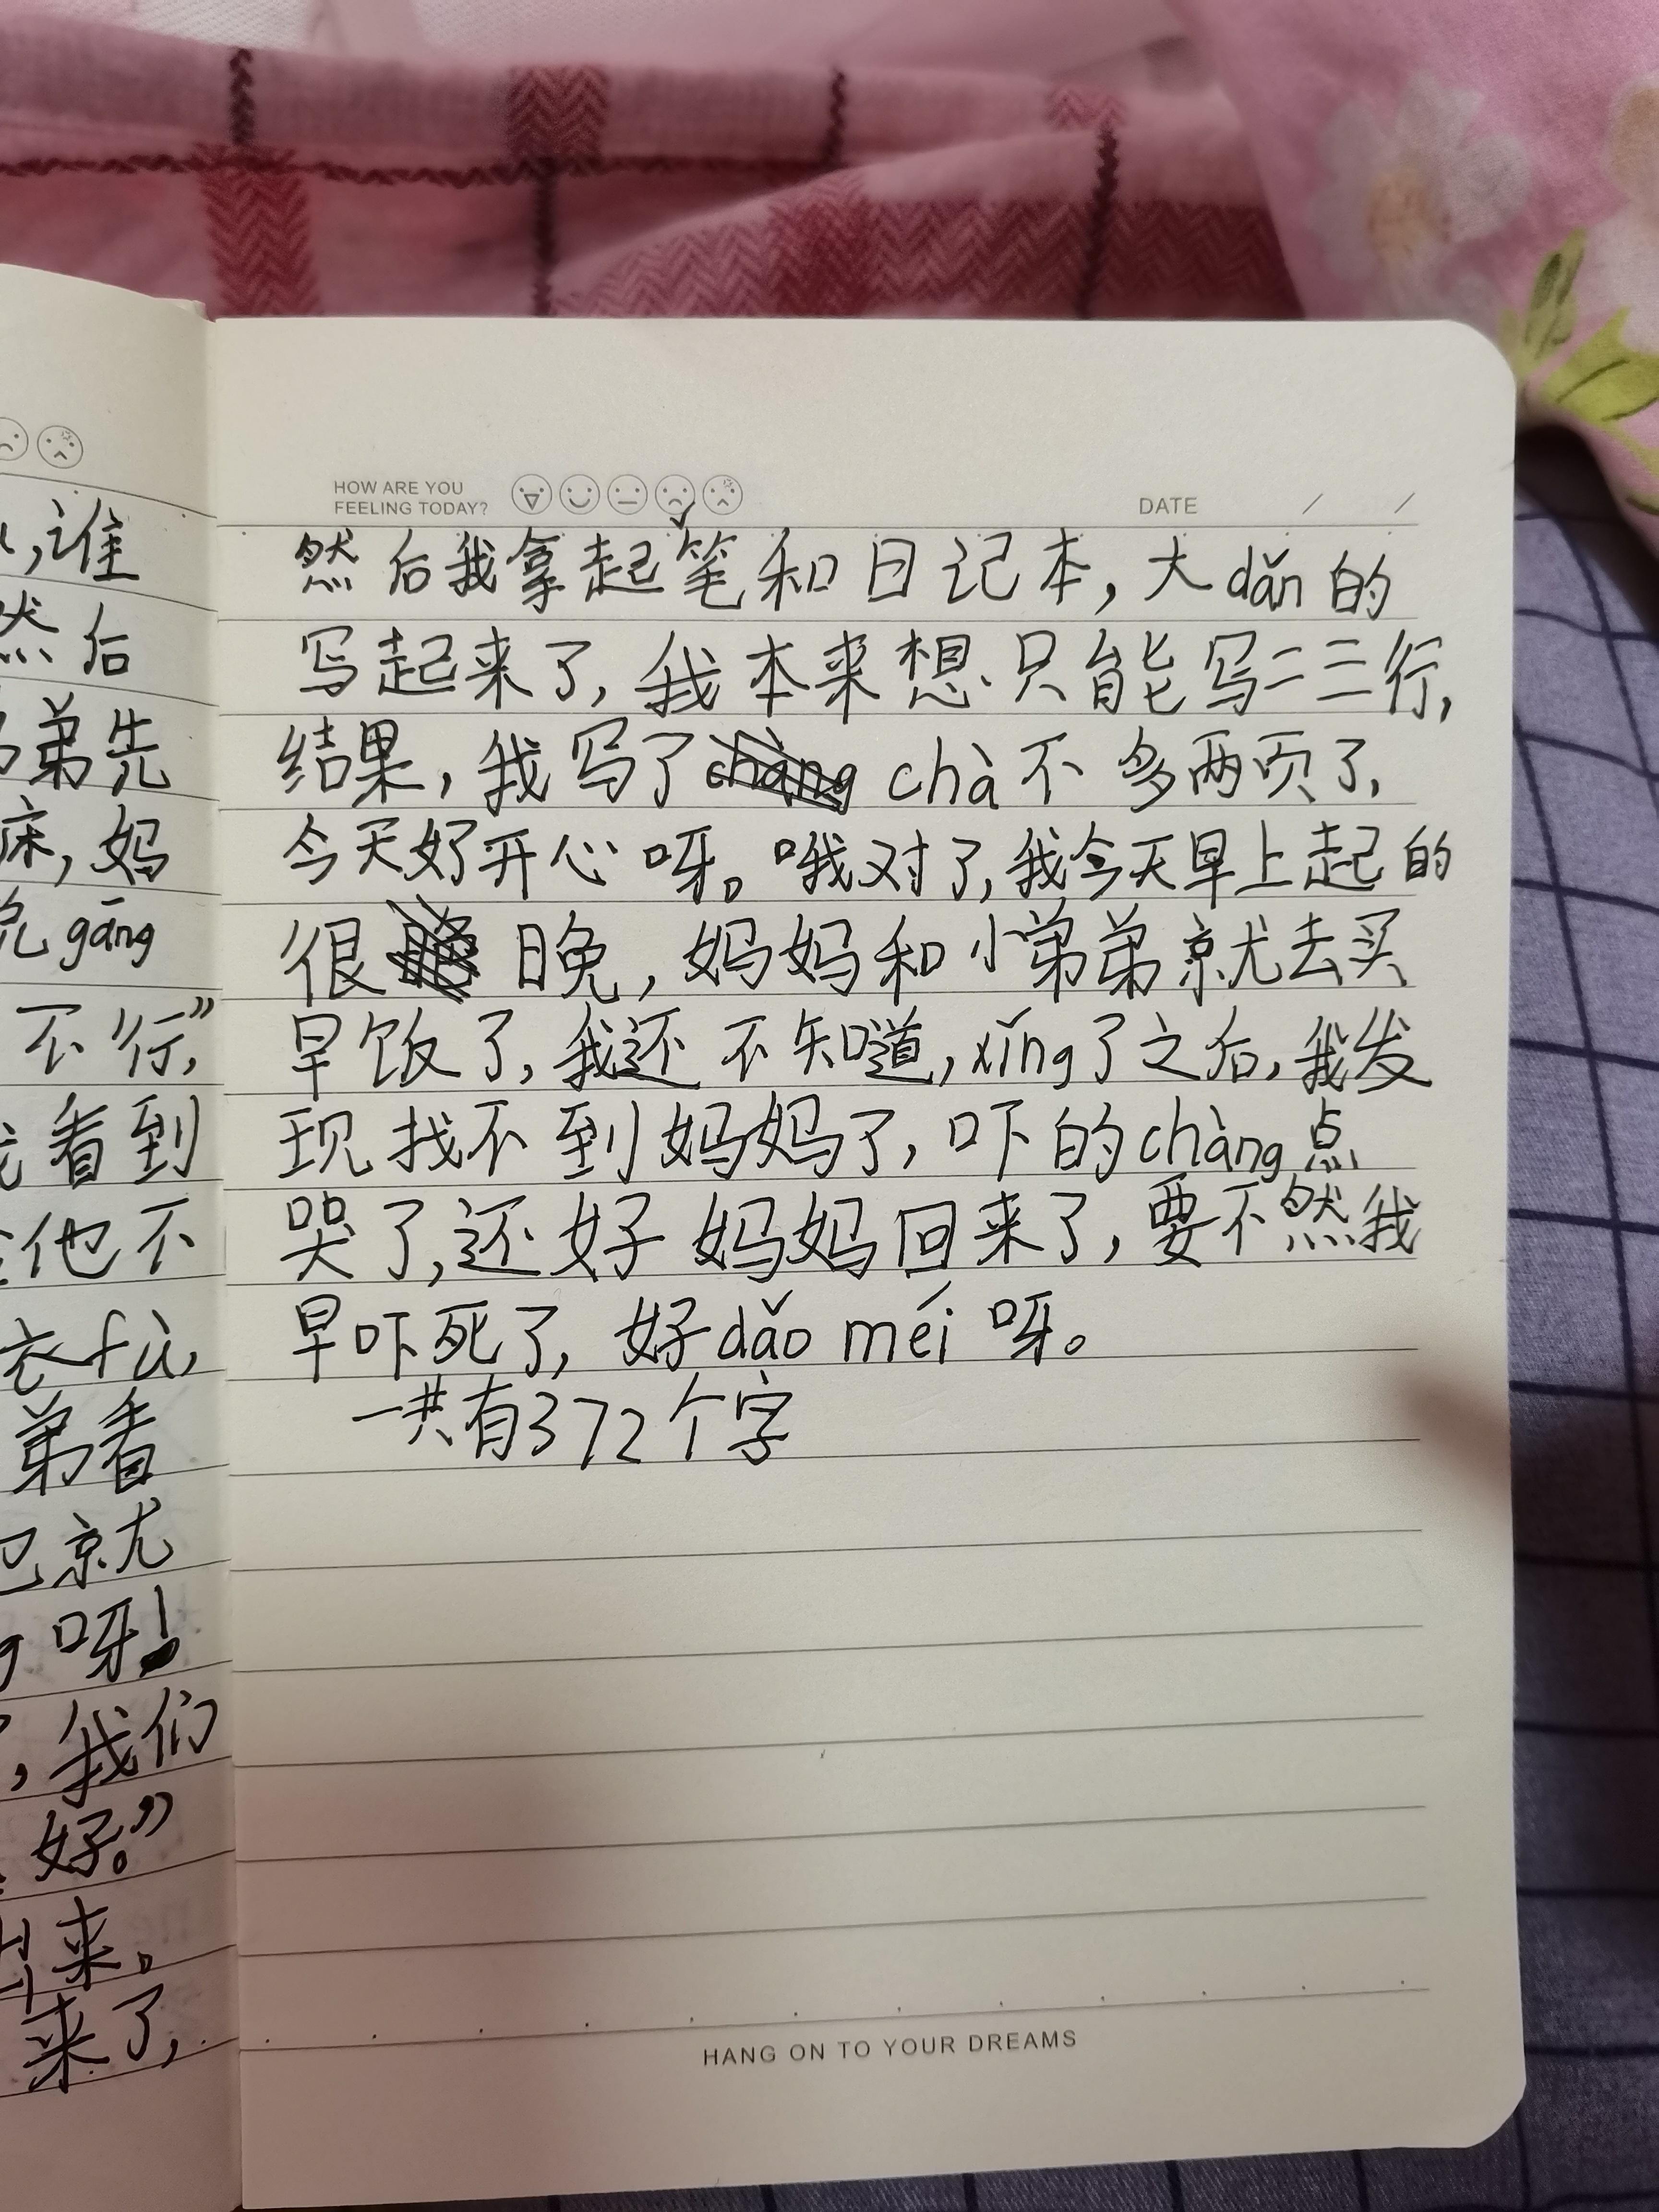 ,谁
然后
弟先
床,妈
gāng
不行,”
看到
他不
衣fù,
弟看
就
呀!
,我们
好。”
出来。
来了,
HOW ARE YOU
FEELING TODAY?
DATE / /
然后我拿起笔和日记本,大dǎn的
写起来了,我本来想只能写二三行,
结果,我写了chà不多两页了,
今天好开心呀。哦对了,我今天早上起的
很晚,妈妈和小弟弟就去买
早饭了,我还不知道,xǐng了之后,我发
现找不到妈妈了,吓的chàng点
哭了,还好妈妈回来了,要不然我
早吓死了,好dǎo méi呀。
一共有372个字
HANG ON TO YOUR DREAMS